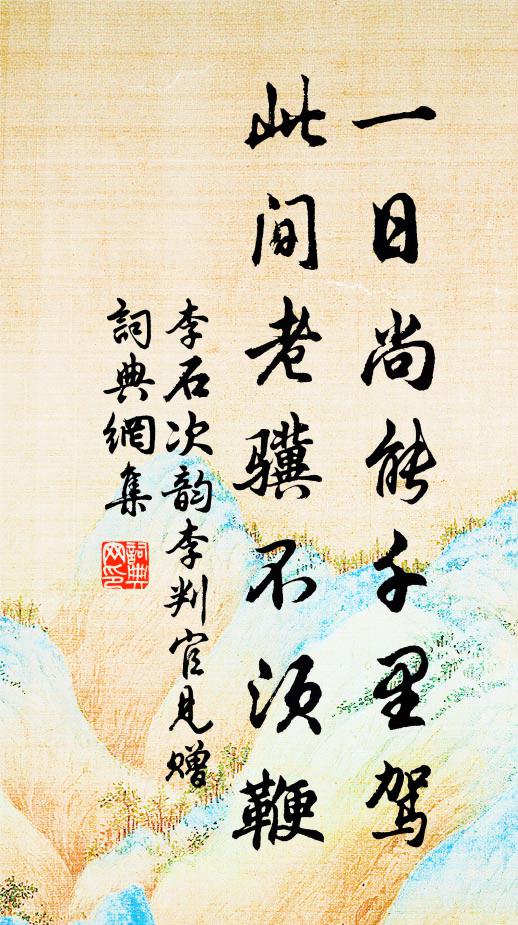 一日尚能千里驾
此间老骥不须鞭
李石次韵李判官見赠
詞典網集
詞典网印